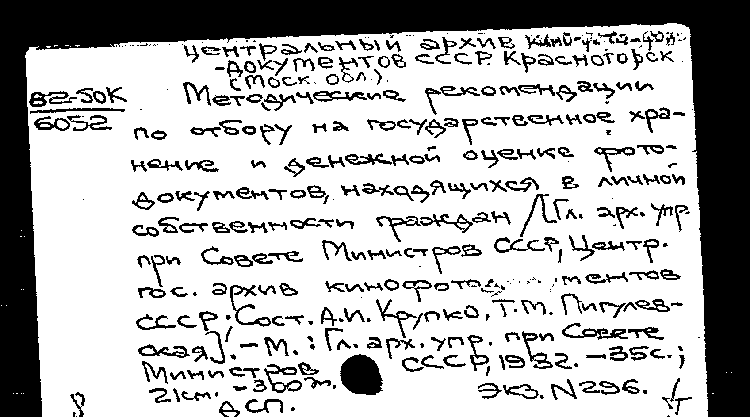 Центральный архив кино-фото-
-документов СССР. Красногорск
(Моск. обл.).
82-50К
6052
Методические рекомендации
по отбору на государственное хра-
нение и денежной оценке фото-
документов, находящихся в личной
собственности граждан / [Гл. арх. упр.
при Совете Министров СССР, Центр.
гос. архив кинофотод ментов
СССР; Сост. А.И. Крупко, Т.М. Пигулев-
ская]. - М. : Гл. арх. упр. при Совете
Министров СССР, 1982. - 35с. ;
21см. - 300 экз. N296.
ДСП.